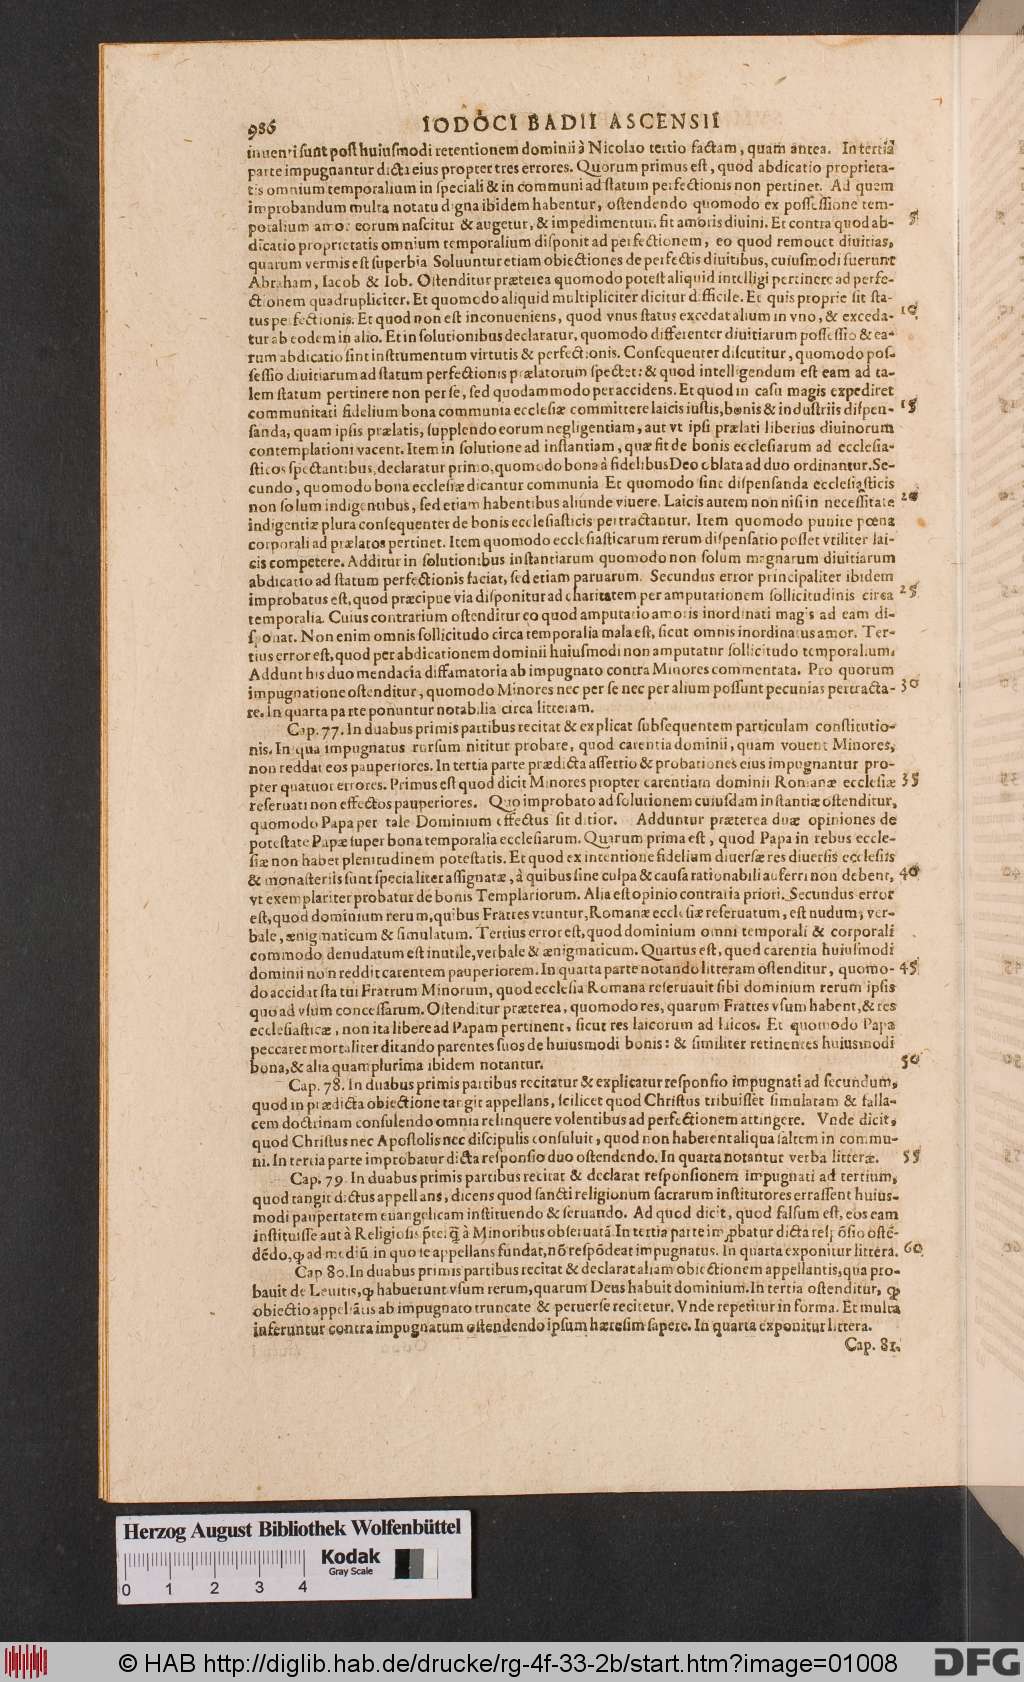 986 IODOCI BADII ASCENSII
inuenti ſunt poſt huiuſmodi retentionem dominii à Nicolao tertio factam, quam antea. In tertia
parte impugnantur dicta eius propter tres errores. Quorum primus eſt, quod abdicatio proprieta-
tis omnium temporalium in ſpeciali & in communi ad ſtatum perfectionis non pertinet. Ad quem
improbandum multa notatu digna ibidem habentur, oſtendendo quomodo ex poſſeſſione tem-
poralium amor eorum naſcitur & augetur, & impedimentum fit amoris diuini. Et contra quod ab- 5
dicatio proprietatis omnium temporalium diſponit ad perfectionem, eo quod remouet diuitias,
quarum vermis eſt ſuperbia Soluuntur etiam obiectiones de perfectis diuitibus, cuiuſmodi fuerunt
Abraham, Iacob & Iob. Oſtenditur præterea quomodo poteſt aliquid intelligi pertinere ad perfe-
ctionem quadrupliciter. Et quomodo aliquid multipliciter dicitur difficile. Et quis proprie ſit ſta-
tus perfectionis. Et quod non eſt inconueniens, quod vnus ſtatus excedat alium in vno, & exceda- 10
tur ab eodem in alio. Et in ſolutionibus declaratur, quomodo differenter diuitiarum poſſeſſio & ea-
rum abdicatio ſint inſtrumentum virtutis & perfectionis. Conſequenter diſcutitur, quomodo poſ-
ſeſſio diuitiarum ad ſtatum perfectionis prælatorum ſpectet: & quod intelligendum eſt eam ad ta-
lem ſtatum pertinere non per ſe, ſed quodammodo per accidens. Et quod in caſu magis expediret
communitati fidelium bona communia eccleſiæ committere laicis iuſtis, bonis & induſtriis diſpen- 15
ſanda, quam ipſis prælatis, ſupplendo eorum negligentiam, aut vt ipſi prælati liberius diuinorum
contemplationi vacent. Item in ſolutione ad inſtantiam, quæ fit de bonis eccleſiarum ad eccleſia-
ſticos ſpectantibus, declaratur primo, quomodo bona à fidelibus Deo oblata ad duo ordinantur. Se-
cundo, quomodo bona eccleſiæ dicantur communia Et quomodo ſint diſpenſanda eccleſiaſticis
non ſolum indigentibus, ſed etiam habentibus aliunde viuere. Laicis autem non niſi in neceſſitate 20
indigentiæ plura conſequenter de bonis eccleſiaſticis pertractantur. Item quomodo punire pœna
corporali ad prælatos pertinet. Item quomodo eccleſiaſticarum rerum diſpenſatio poſſet vtiliter lai-
cis competere. Additur in ſolutionibus inſtantiarum quomodo non ſolum magnarum diuitiarum
abdicatio ad ſtatum perfectionis faciat, ſed etiam paruarum. Secundus error principaliter ibidem
improbatus eſt, quod præcipue via diſponitur ad charitatem per amputationem ſollicitudinis circa 25
temporalia. Cuius contrarium oſtenditur eo quod amputatio amoris inordinati magis ad eam di-
ſponat. Non enim omnis ſollicitudo circa temporalia mala eſt, ſicut omnis inordinatus amor. Ter-
tius error eſt, quod per abdicationem dominii huiuſmodi non amputatur ſollicitudo temporalium.
Addunt his duo mendacia diffamatoria ab impugnato contra Minores commentata. Pro quorum
impugnatione oſtenditur, quomodo Minores nec per ſe nec per alium poſſunt pecunias pertracta- 30
re. In quarta parte ponuntur notabilia circa litteram.
Cap. 77. In duabus primis partibus recitat & explicat ſubſequentem particulam conſtitutio-
nis. In qua impugnatus rurſum nititur probare, quod carentia dominii, quam vouent Minores,
non reddat eos pauperiores. In tertia parte prædicta aſſertio & probationes eius impugnantur pro-
pter quatuor errores. Primus eſt quod dicit Minores propter carentiam dominii Romanæ eccleſiæ 35
reſeruati non effectos pauperiores. Quo improbato ad ſolutionem cuiuſdam inſtantiæ oſtenditur,
quomodo Papa per tale Dominium effectus ſit ditior. Adduntur præterea duæ opiniones de
poteſtate Papæ ſuper bona temporalia eccleſiarum. Quarum prima eſt, quod Papa in rebus eccle-
ſiæ non habet plenitudinem poteſtatis. Et quod ex intentione fidelium diuerſæ res diuerſis eccleſiis
& monaſteriis ſunt ſpecialiter aſſignatæ, à quibus ſine culpa & cauſa rationabili auferri non debent, 40
vt exemplariter probatur de bonis Templariorum. Alia eſt opinio contraria priori. Secundus error
eſt, quod dominium rerum, quibus Fratres vtuntur, Romanæ eccleſiæ reſeruatum, eſt nudum, ver-
bale, ænigmaticum & ſimulatum. Tertius error eſt, quod dominium omni temporali & corporali
commodo denudatum eſt inutile, verbale & ænigmaticum. Quartus eſt, quod carentia huiuſmodi
dominii non reddit carentem pauperiorem. In quarta parte notando litteram oſtenditur, quomo- 45
do accidat ſtatui Fratrum Minorum, quod eccleſia Romana reſeruauit ſibi dominium rerum ipſis
quo ad vſum conceſſarum. Oſtenditur præterea, quomodo res, quarum Fratres vſum habent, & res
eccleſiaſticæ, non ita libere ad Papam pertinent, ſicut res laicorum ad laicos. Et quomodo Papa
peccaret mortaliter ditando parentes ſuos de huiuſmodi bonis: & ſimiliter retinentes huiuſmodi
bona, & alia quamplurima ibidem notantur. 50
Cap. 78. In duabus primis partibus recitatur & explicatur reſponſio impugnati ad ſecundum,
quod in prædicta obiectione tangit appellans, ſcilicet quod Chriſtus tribuiſſet ſimulatam & falla-
cem doctrinam conſulendo omnia relinquere volentibus ad perfectionem attingere. Vnde dicit,
quod Chriſtus nec Apoſtolis nec diſcipulis conſuluit, quod non haberent aliqua ſaltem in commu-
ni. In tertia parte improbatur dicta reſponſio duo oſtendendo. In quarta notantur verba litteræ. 55
Cap. 79. In duabus primis partibus recitat & declarat reſponſionem impugnati ad tertium,
quod tangit dictus appellans, dicens quod ſancti religionum ſacrarum inſtitutores erraſſent huiuſ-
modi paupertatem euangelicam inſtituendo & ſeruando. Ad quod dicit, quod falſum eſt, eos eam
inſtituiſſe aut à Religioſis p̃tei q̃ à Minoribus obſeruatã. In tertia parte imꝓbatur dicta reſpõſio oſtẽ-
dẽdo, ꝙ ad mediũ in quo ſe appellans fundat, nõ reſpõdeat impugnatus. In quarta exponitur littera. 60
Cap. 80. In duabus primis partibus recitat & declarat aliam obiectionem appellantis, qua pro-
bauit de Leuitis, ꝙ habuerunt vſum rerum, quarum Deus habuit dominium. In tertia oſtenditur, ꝙ
obiectio appellãtis ab impugnato truncate & peruerſe recitetur. Vnde repetitur in forma. Et multa
inferuntur contra impugnatum oſtendendo ipſum hæreſim ſapere. In quarta exponitur littera.
Cap. 81.
Herzog August Bibliothek Wolfenbüttel
Kodak
Gray Scale
0 1 2 3 4
© HAB http://diglib.hab.de/drucke/rg-4f-33-2b/start.htm?image=01008
DFG